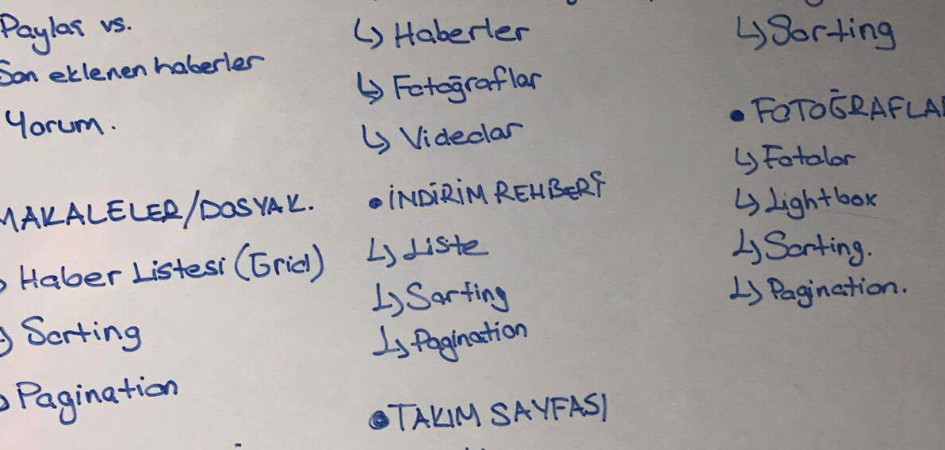 Paylaş vs.
Son eklenen haberler
Yorum.
MAKALELER/DOSYAK.
Haber Listesi (Grid)
Sorting
Pagination
↳ Haberler
↳ Fotoğraflar
↳ Videolar
• İNDİRİM REHBERİ
↳ Liste
↳ Sorting
↳ Pagination
• TAKIM SAYFASI
↳ Sorting
• FOTOĞRAFLA
↳ Fotolar
↳ Lightbox
↳ Sorting.
↳ Pagination.